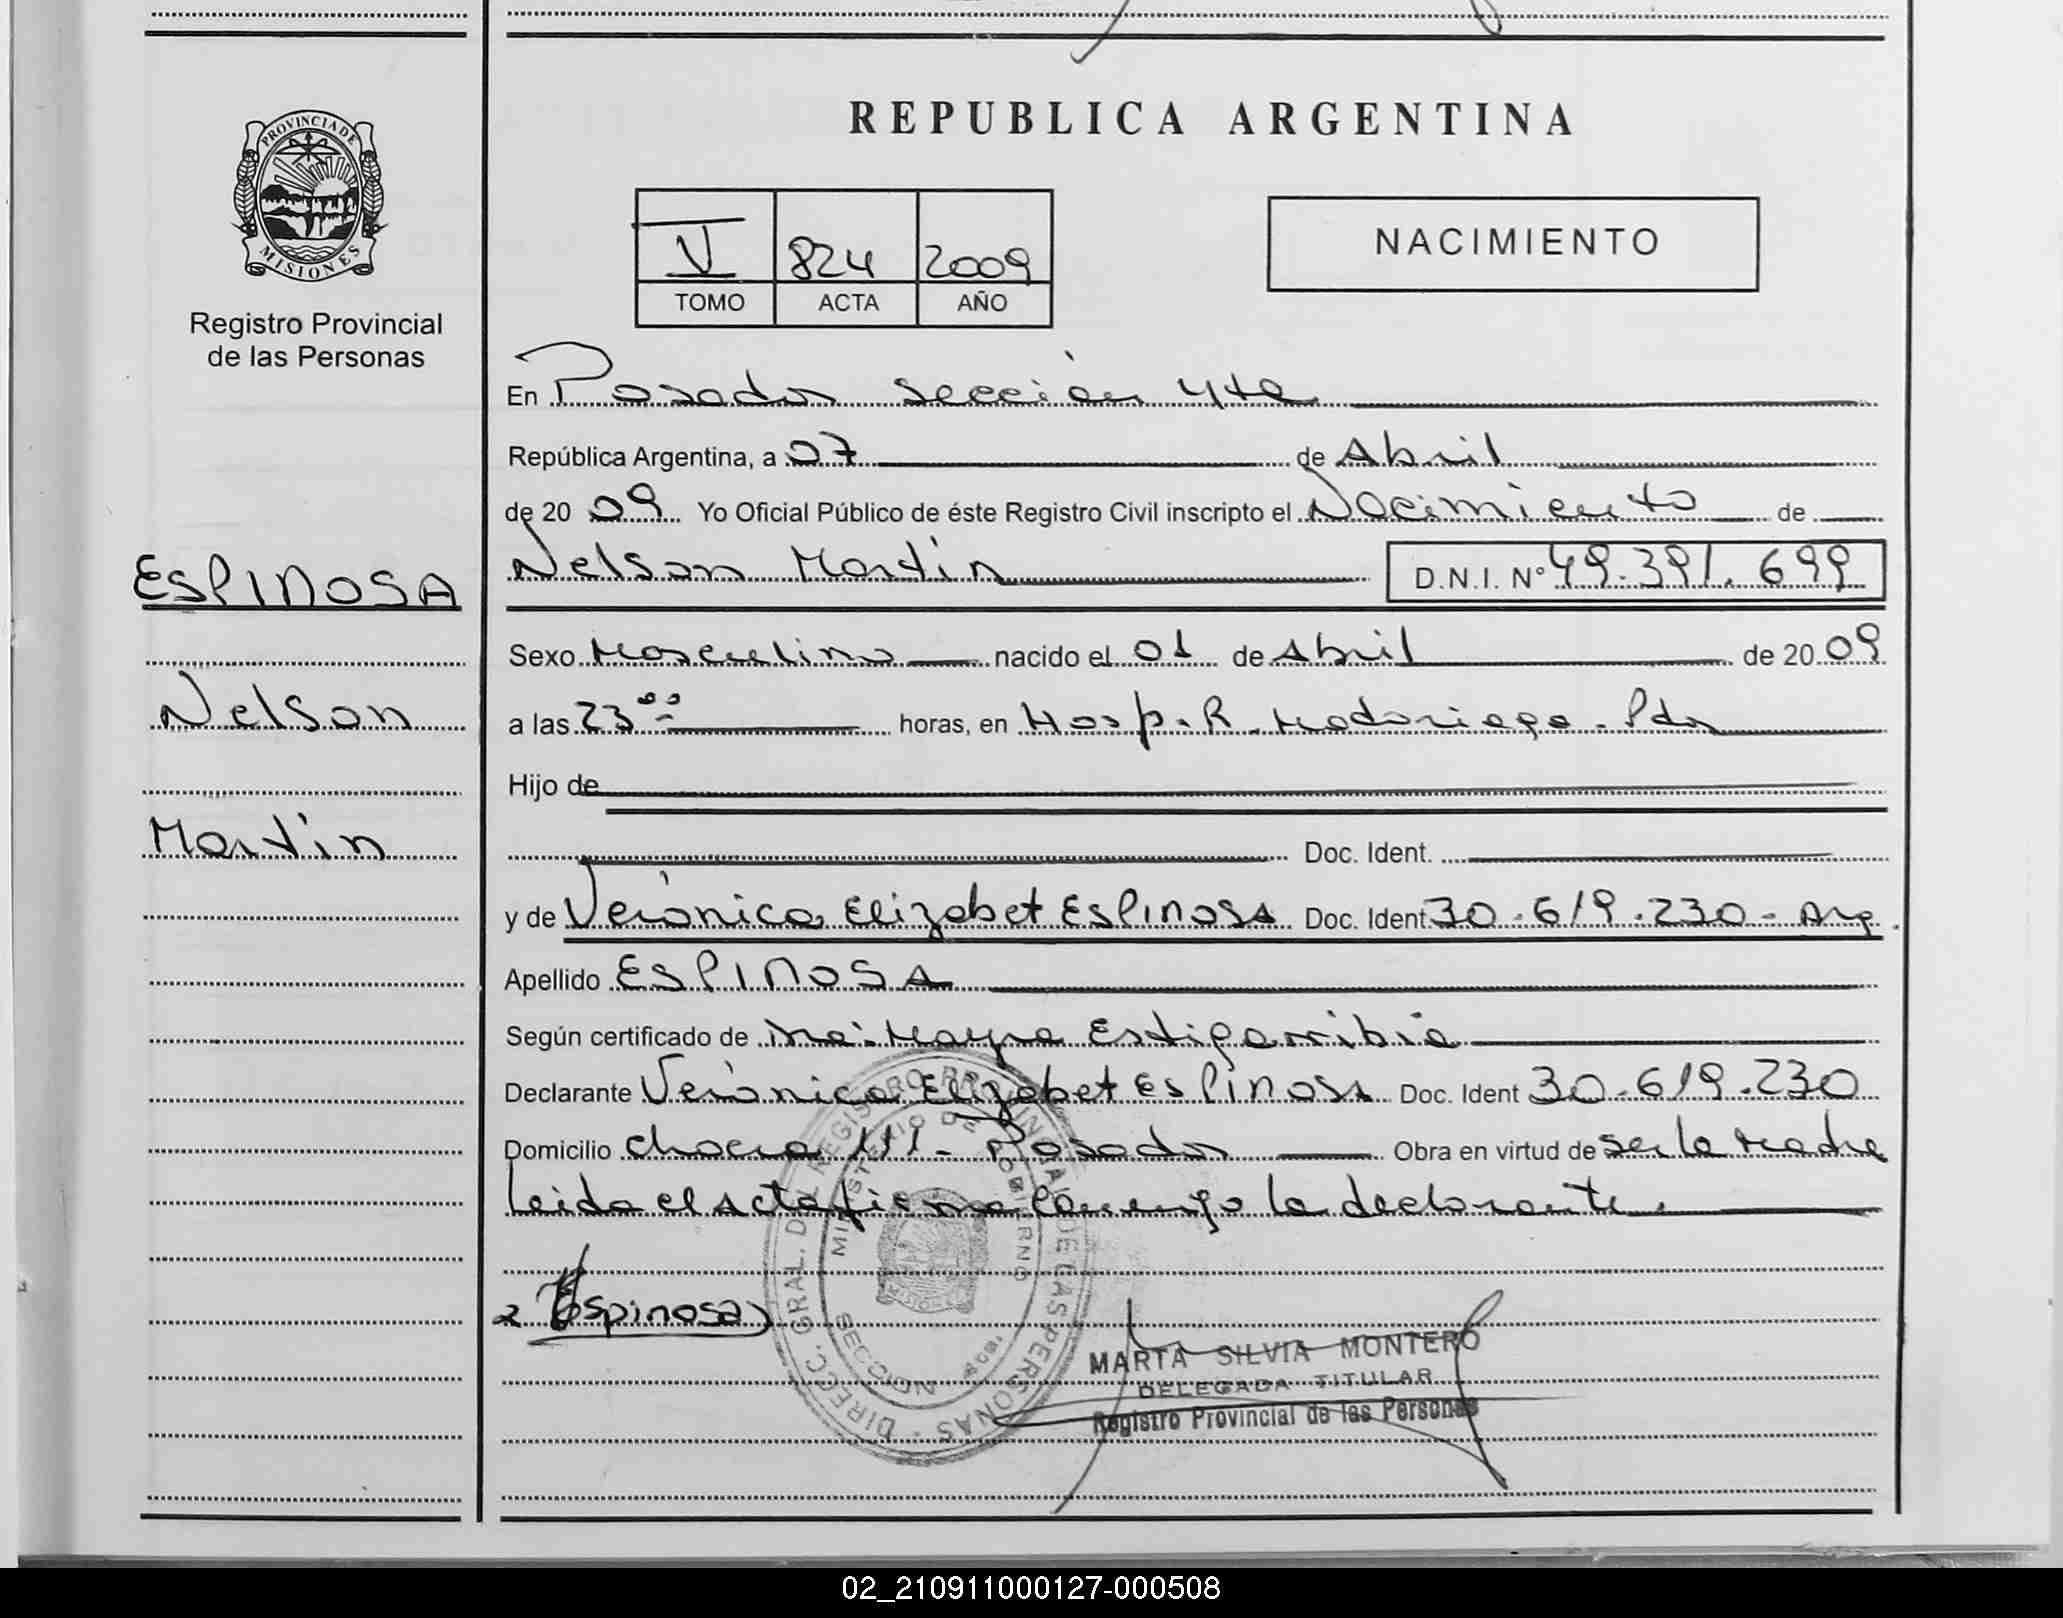 REPUBLICA ARGENTINA
PROVINCIA DE
MISIONES
Registro Provincial
de las Personas
V 824 2009
TOMO ACTA AÑO
NACIMIENTO
En Posadas sección 4ta
República Argentina, a 07 de Abril
de 2009 Yo Oficial Público de éste Registro Civil inscripto el Nacimiento de
Nelson Martín D.N.I. Nº 49.391.699
ESPINOSA
Nelson
Martín
Sexo Masculino nacido el 01 de Abril de 2009
a las 23 00 horas, en Hosp. R. Madariaga - Pdas
Hijo de
Doc. Ident.
y de Verónica Elizabet ESPINOSA Doc. Ident 30.619.230 - Arg.
Apellido ESPINOSA
Según certificado de Mayra Estigarribia
Declarante Verónica Elizabet ESPINOSA Doc. Ident 30.619.230
Domicilio chacra 111 - Posadas Obra en virtud de ser la madre
leida el acta firma conmigo la declarante.
Espinosa
DIRECC. GRAL. DEL REGISTRO PROVINCIAL DE LAS PERSONAS
MINISTERIO DE GOBIERNO
SECCION
MISIONES
MARTA SILVIA MONTERO
DELEGADA TITULAR
Registro Provincial de las Personas
02_210911000127-000508